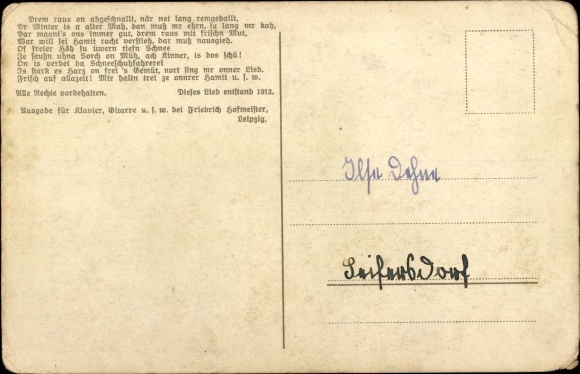 Drem raus on abgeschnallt, när net lang remgedallt,
Dr Winter is a alter Mah, dan muß mr ehrn, su lang mr kah,
Dar maant's ons immer gut, drem raus mit frischn Mut,
War will sei Hamit racht verstieh, dar muß nausgieh.
Of freier Höh su üwern tiefn Schnee
Ze sausn uhna Sorch on Müh, ach Kinner, is dos schü!
On is verbei da Schneeschuhfahrerei
Is stark es Harz on frei 's Gemüt, nort sing mr onner Lied.
Frisch auf allazeit! Mir haltn trei ze onnrer Hamit u. s. w.
Alle Rechte vorbehalten. Dieses Lied entstand 1912.
Ausgabe für Klavier, Gitarre u. s. w. bei Friedrich Hofmeister,
Leipzig.
Ilse Dehne
Seifersdorf